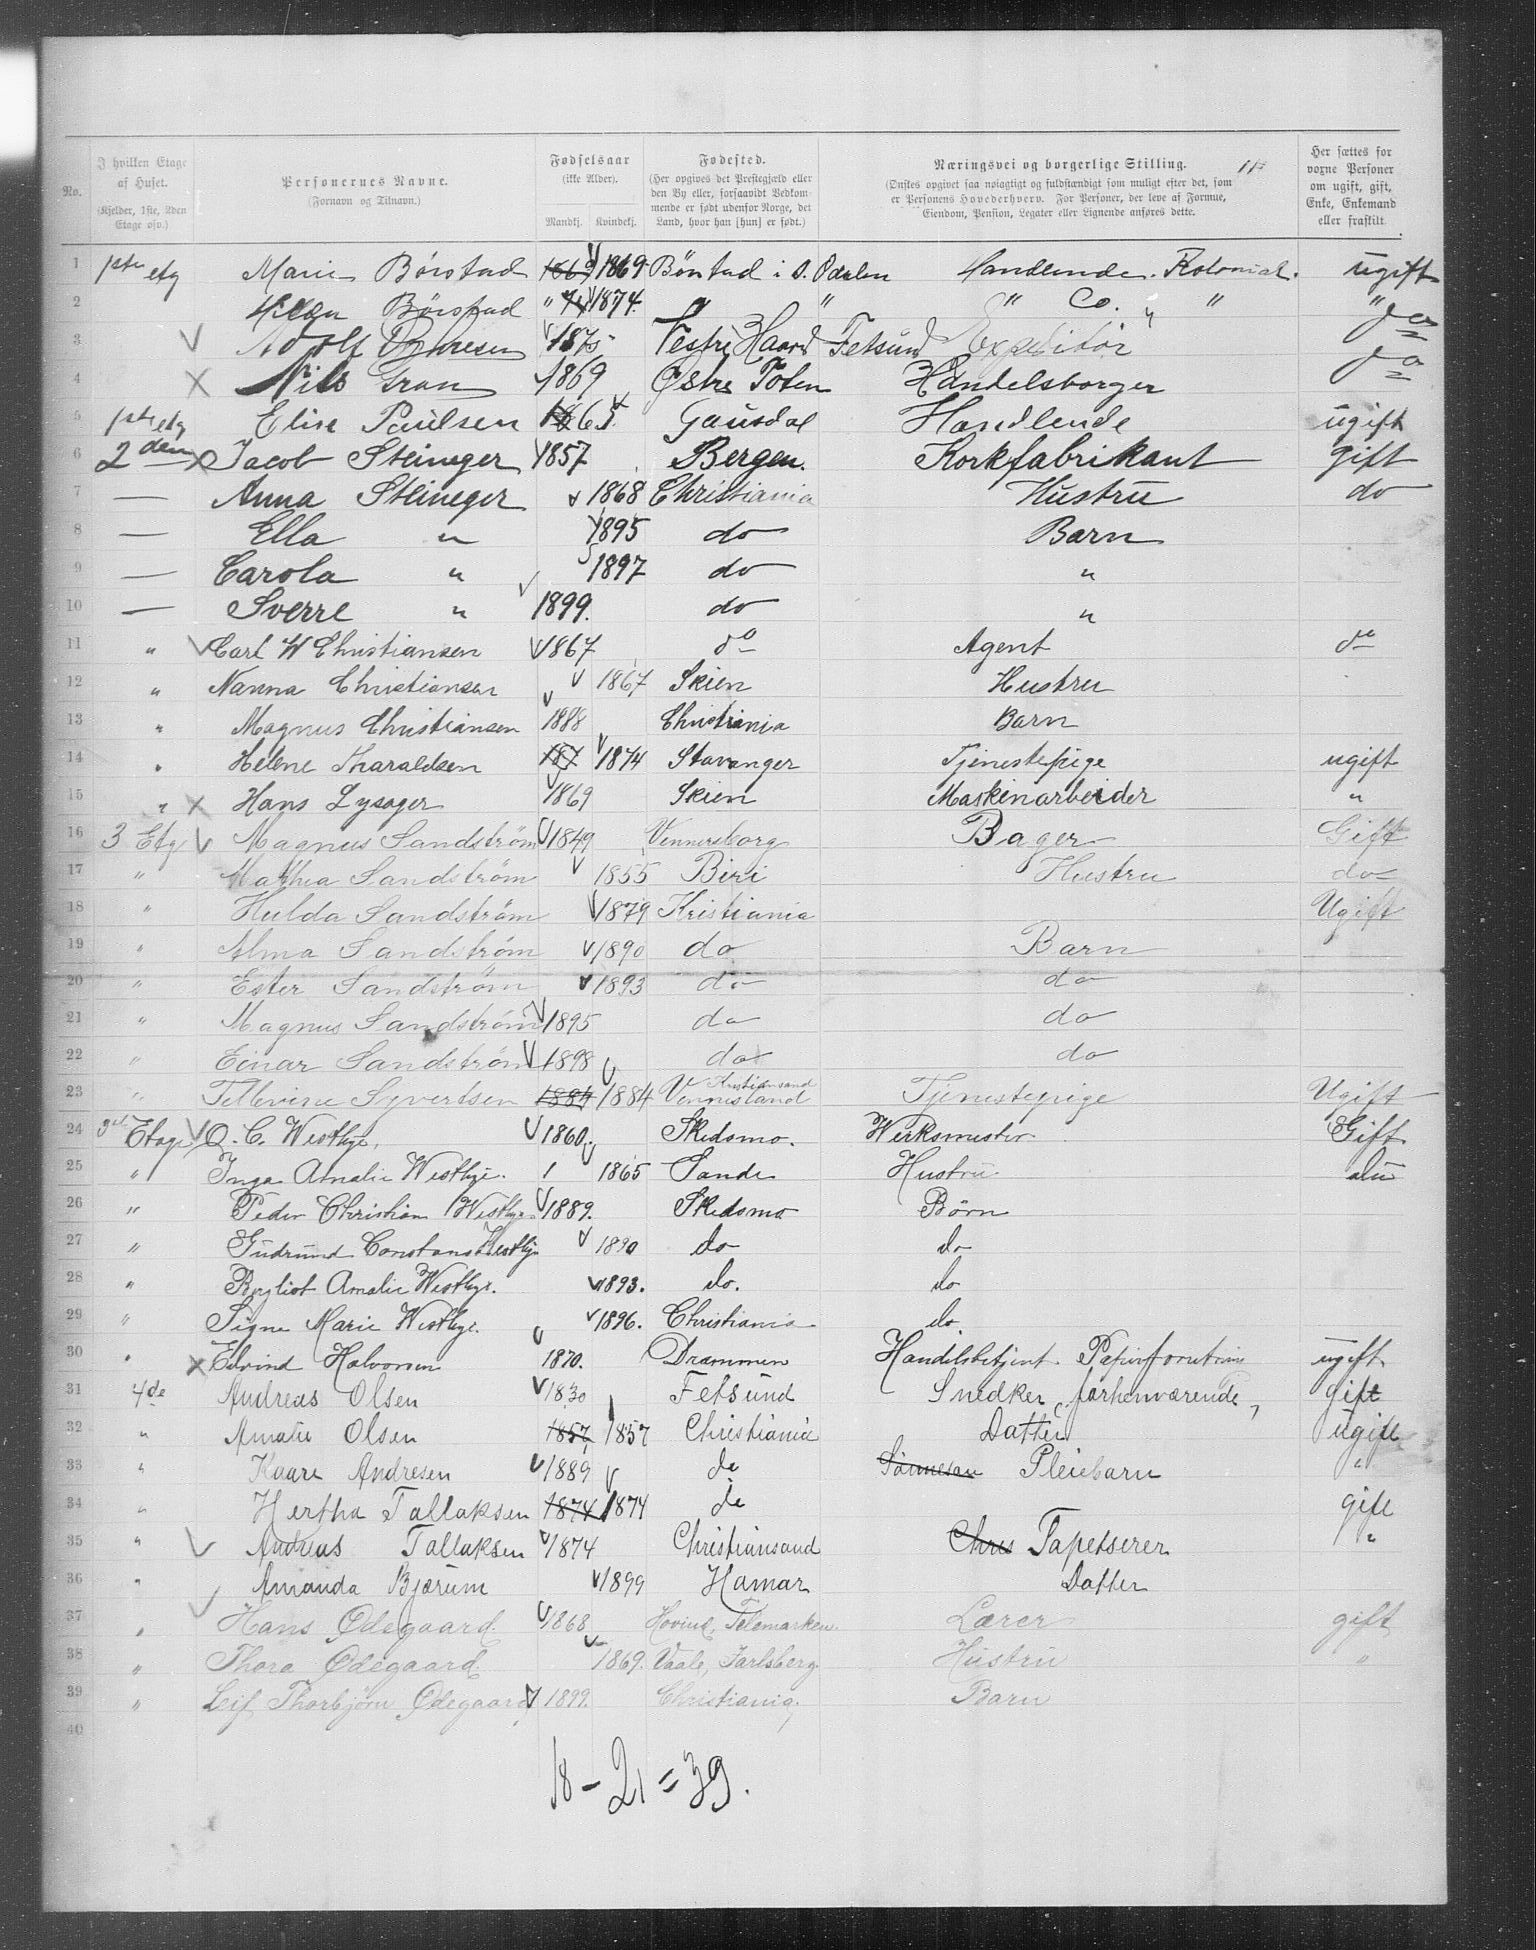 No.
I hvilken Etage af Huset. (Kjelder, 1ste, 2den Etage osv.)
Personernes Navne. (Fornavn og Tilnavn.)
Fødselsaar (ikke Alder). Mandkj. Kvindekj.
Fødested. (Her opgives det Prestegjæld eller den By eller, forsaavidt Vedkommende er født udenfor Norge, det Land, hvor han [hun] er født.)
Næringsvei og borgerlige Stilling. (Ønskes opgivet saa nøiagtigt og fuldstændigt som muligt efter det, som er Personens Hovederhverv. For Personer, der leve af Formue, Eiendom, Pension, Legater eller Lignende anføres dette.
Her sættes for voxne Personer om ugift, gift, Enke, Enkemand eller fraskilt.
1 1ste etg Marie Børstad 1869 1869 Børstad i S. Odalen Handlende. Kolonial. ugift
2 Børstad " 74 1874 " " " Co. " " "
3 Adolf 1875 Vestre Fetsund Expeditør do
4 Nils Gran 1869 Østre Toten Handelsborger do
5 1ste etg Elise Paulsen 1865 Gausdal Handlende ugift
6 2den Jacob Steineger 1857 Bergen. Korkfabrikant gift
7 — Anna Steineger 1868 Christiania Hustru do
8 — Ella " 1895 do Barn
9 — Carola " 1897 do "
10 — Sverre " 1899. do "
11 " Carl W Christiansen 1867 do Agent do
12 " Nanna Christiansen 1867 Skien Hustru
13 " Magnus Christiansen 1888 Christiania Barn
14 " Helene Tharaldsen 187 1874 Stavanger Tjenestepige ugift
15 " Hans Lysager 1869 Skien Maskinarbeider "
16 3 Etg Magnus Sandström 1849 Vennersborg Bager Gift
17 " Mathea Sandström 1855 Biri Hustru do
18 " Hulda Sandström 1879 Kristiania Ugift
19 " Alma Sandström 1890 do Barn
20 " Ester Sandström 1893 do do
21 " Magnus Sandström 1895 do do
22 " Einar Sandström 1898 do do
23 " Tellevine Syvertsen 1884 1884 Kristiansand Vennesland Tjenestepige Ugift
24 3die Etage O. C. Westbye, 1860. Skedsmo. Werksmester Gift
25 " Inga Amalie Westbye. 1 1865 Sande Hustru
26 " Peder Christian Westbye 1889. Skedsmo Børn
27 " Gudrund Constanse Westbye 1890 do do
28 " Bergliot Amalie Westbye. 1893. do. do
29 " Signe Marie Westbye. 1896. Christiania do
30 " Edvind Halvorsen 1870. Drammen Handelsbetjent. ugift
31 4de Andreas Olsen 1830 Fetsund Snedker, forhenværende, gift
32 " Amalie Olsen 1857 1857 Christiania Datter ugift
33 " Kaare Andresen 1889 do Sønnesøn Pleiebarn "
34 " Hertha Tallaksen 1874 1874 do gift
35 " Andreas Tallaksen 1874 Christiansand Chris Tapetserer "
36 " Amanda Bjærum 1899 Hamar Datter
37 " Hans Ødegaard. 1868 Hovind, Telemarken Lærer gift
38 " Thora Ødegaard. 1869. Vaale, Jarlsberg. Hustru "
39 " Leif Thorbjørn Ødegaard, 1899. Christiania, Barn
40
18 - 21 = 39.